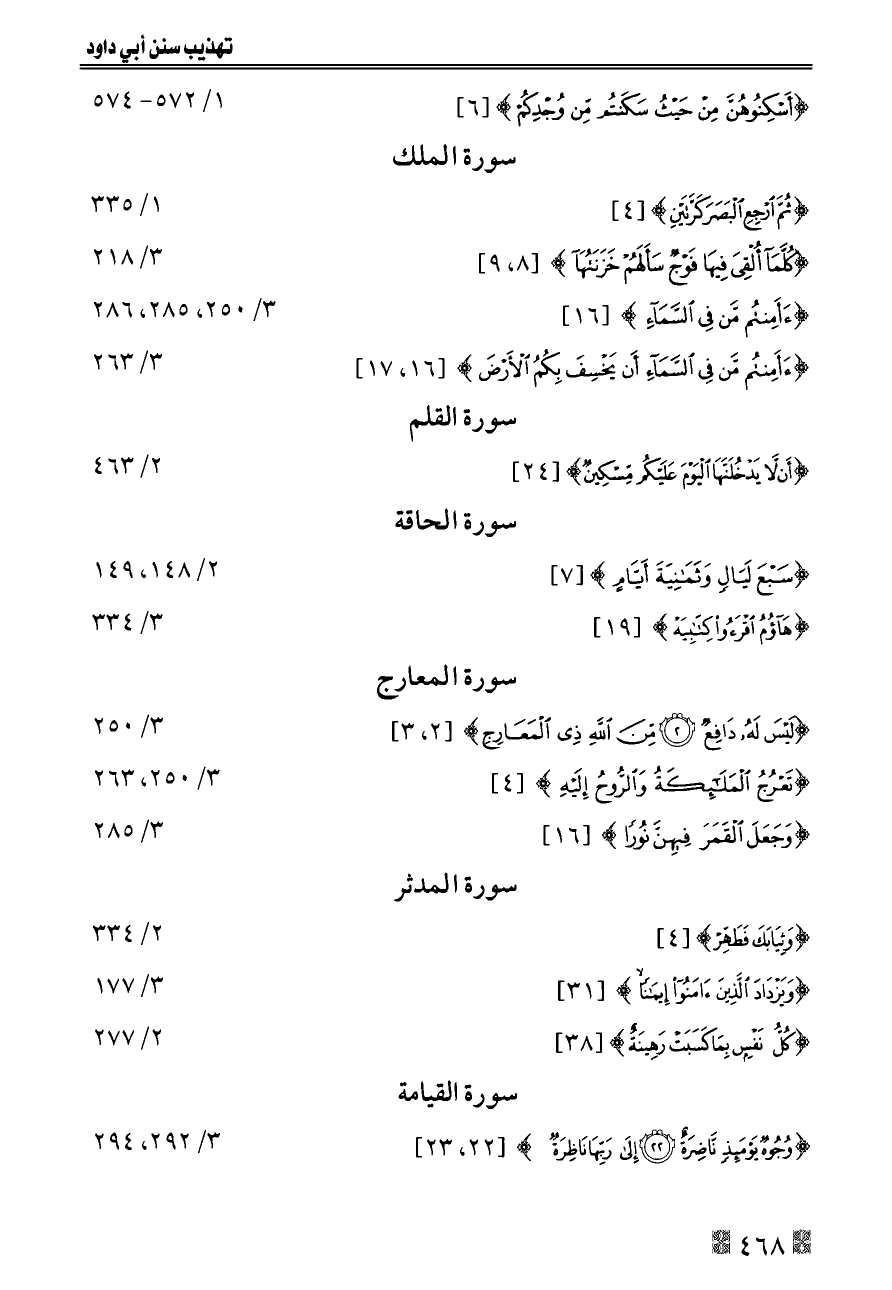 تهذيب سنن أبي داود
﴿أَسْكِنُوهُنَّ مِنْ حَيْثُ سَكَنتُم مِّن وُجْدِكُمْ﴾ [٦] ١/ ٥٧٢ - ٥٧٤
سورة الملك
﴿ثُمَّ ٱرْجِعِ ٱلْبَصَرَ كَرَّتَيْنِ﴾ [٤] ١/ ٣٣٥
﴿كُلَّمَآ أُلْقِىَ فِيهَا فَوْجٌ سَأَلَهُمْ خَزَنَتُهَآ﴾ [٨، ٩] ٣/ ٢١٨
﴿ءَأَمِنتُم مَّن فِى ٱلسَّمَآءِ﴾ [١٦] ٣/ ٢٥٠، ٢٨٥، ٢٨٦
﴿ءَأَمِنتُم مَّن فِى ٱلسَّمَآءِ أَن يَخْسِفَ بِكُمُ ٱلْأَرْضَ﴾ [١٦، ١٧] ٣/ ٢٦٣
سورة القلم
﴿أَن لَّا يَدْخُلَنَّهَا ٱلْيَوْمَ عَلَيْكُم مِّسْكِينٌ﴾ [٢٤] ٢/ ٤٦٣
سورة الحاقة
﴿سَبْعَ لَيَالٍ وَثَمَٰنِيَةَ أَيَّامٍ﴾ [٧] ٢/ ١٤٨، ١٤٩
﴿هَآؤُمُ ٱقْرَءُوا۟ كِتَٰبِيَهْ﴾ [١٩] ٣/ ٣٣٤
سورة المعارج
﴿لَيْسَ لَهُۥ دَافِعٌ ۝٢ مِّنَ ٱللَّهِ ذِى ٱلْمَعَارِجِ﴾ [٢، ٣] ٣/ ٢٥٠
﴿تَعْرُجُ ٱلْمَلَٰٓئِكَةُ وَٱلرُّوحُ إِلَيْهِ﴾ [٤] ٣/ ٢٥٠، ٢٦٣
﴿وَجَعَلَ ٱلْقَمَرَ فِيهِنَّ نُورًا﴾ [١٦] ٣/ ٢٨٥
سورة المدثر
﴿وَثِيَابَكَ فَطَهِّرْ﴾ [٤] ٢/ ٣٣٤
﴿وَيَزْدَادَ ٱلَّذِينَ ءَامَنُوٓا۟ إِيمَٰنًا ۙ﴾ [٣١] ٣/ ١٧٧
﴿كُلُّ نَفْسٍۭ بِمَا كَسَبَتْ رَهِينَةٌ﴾ [٣٨] ٢/ ٢٧٧
سورة القيامة
﴿وُجُوهٌ يَوْمَئِذٍ نَّاضِرَةٌ ۝٢٢ إِلَىٰ رَبِّهَا نَاظِرَةٌ﴾ [٢٢، ٢٣] ٣/ ٢٩٢، ٢٩٤
٤٦٨